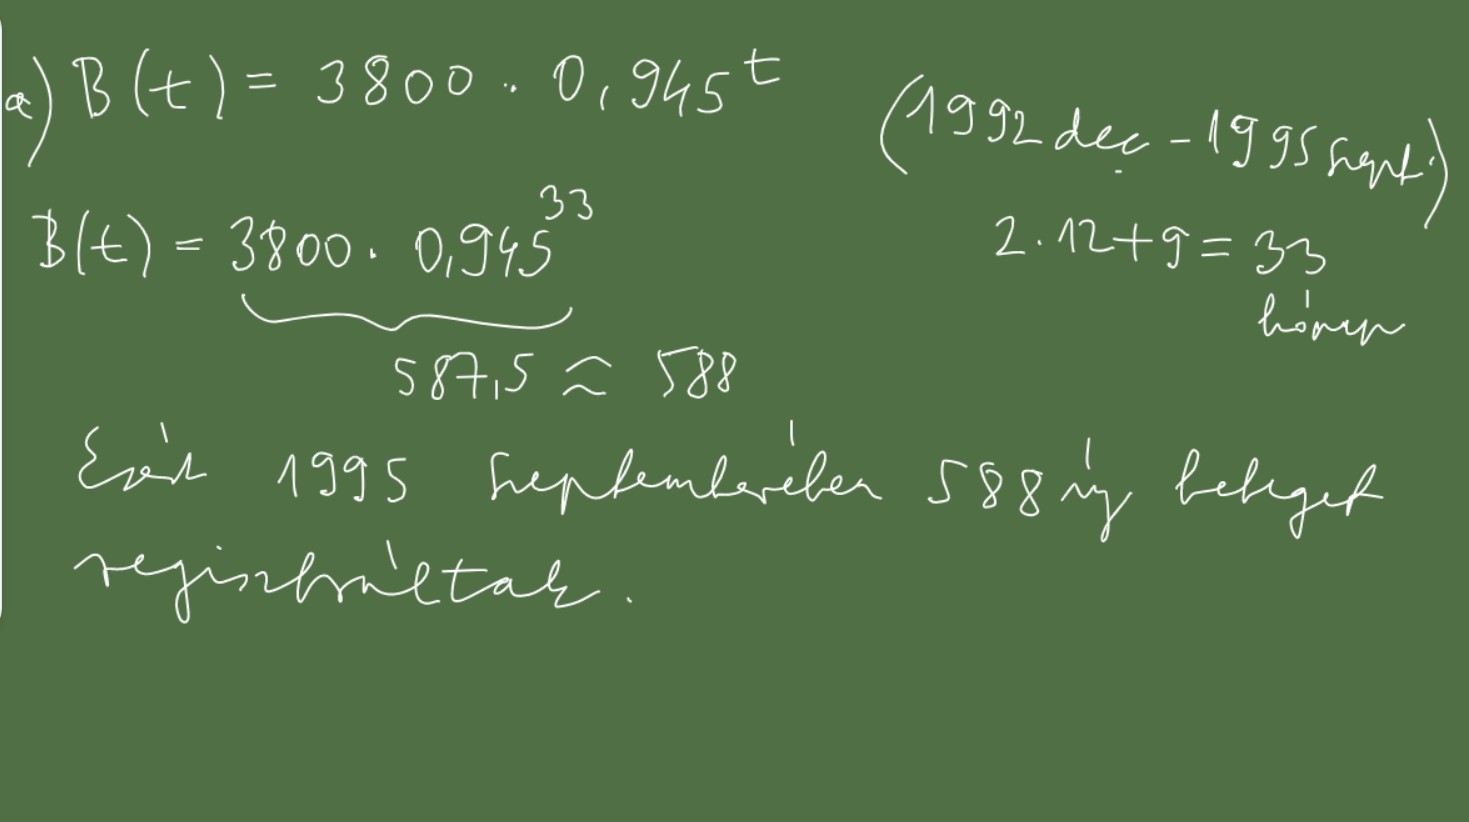 a) B(t) = 3800 · 0,945^t
(1992 dec. - 1995 szept.)
B(t) = 3800 · 0,945^33
2·12+9 = 33
hónap
587,5 ≈ 588
Ezért 1995 szeptemberében 588 új beteget
regisztráltak.